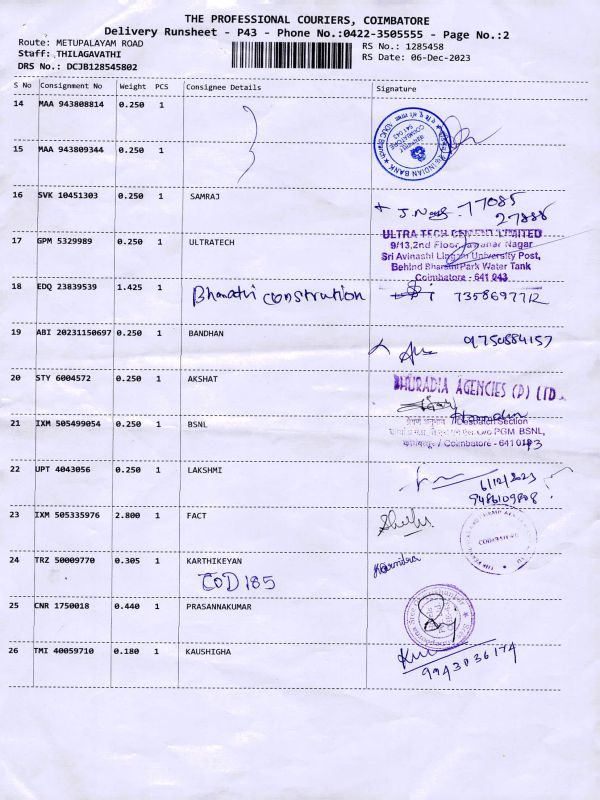 THE PROFESSIONAL COURIERS, COIMBATORE
Delivery Runsheet - P43 - Phone No.:0422-3505555 - Page No.:2
Route: METUPALAYAM ROAD
RS No.: 1285458
Staff: THILAGAVATHI
RS Date: 06-Dec-2023
DRS No.: DCJB128545802
S No Consignment No Weight PCS Consignee Details Signature
14 MAA 943808814 0.250 1
INDIAN BANK
15 MAA 943809344 0.250 1
16 SVK 10451303 0.250 1 SAMRAJ
77085
27888
17 GPM 5329989 0.250 1 ULTRATECH
ULTRA TECH CEMENT LIMITED
9/13,2nd Floor, Jawahar Nagar
Sri Avinashi Lingam University Post,
Behind Bharathi Park Water Tank
Coimbatore - 641 043
18 EDQ 23839539 1.425 1 Bharathi constrution 7358697712
19 ABI 20231150697 0.250 1 BANDHAN 9750884157
20 STY 6004572 0.250 1 AKSHAT
BHURADIA AGENCIES (P) LTD.
21 IXM 505499054 0.250 1 BSNL
Despatch Section
O/o PGM BSNL,
Coimbatore - 641 043
22 UPT 4043056 0.250 1 LAKSHMI
6/12/2023
9486109808
23 IXM 505335976 2.800 1 FACT
24 TRZ 50009770 0.305 1 KARTHIKEYAN
COD 185
25 CNR 1750018 0.440 1 PRASANNAKUMAR
26 TMI 40059710 0.180 1 KAUSHIGHA
9943836174